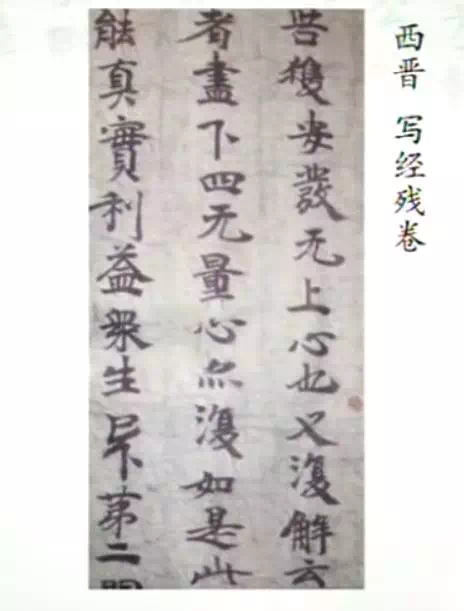 西晋 写经残卷
獲安發无上心也又復解云
者盡下四无量心亦復如是此
能真實利益衆生下第二